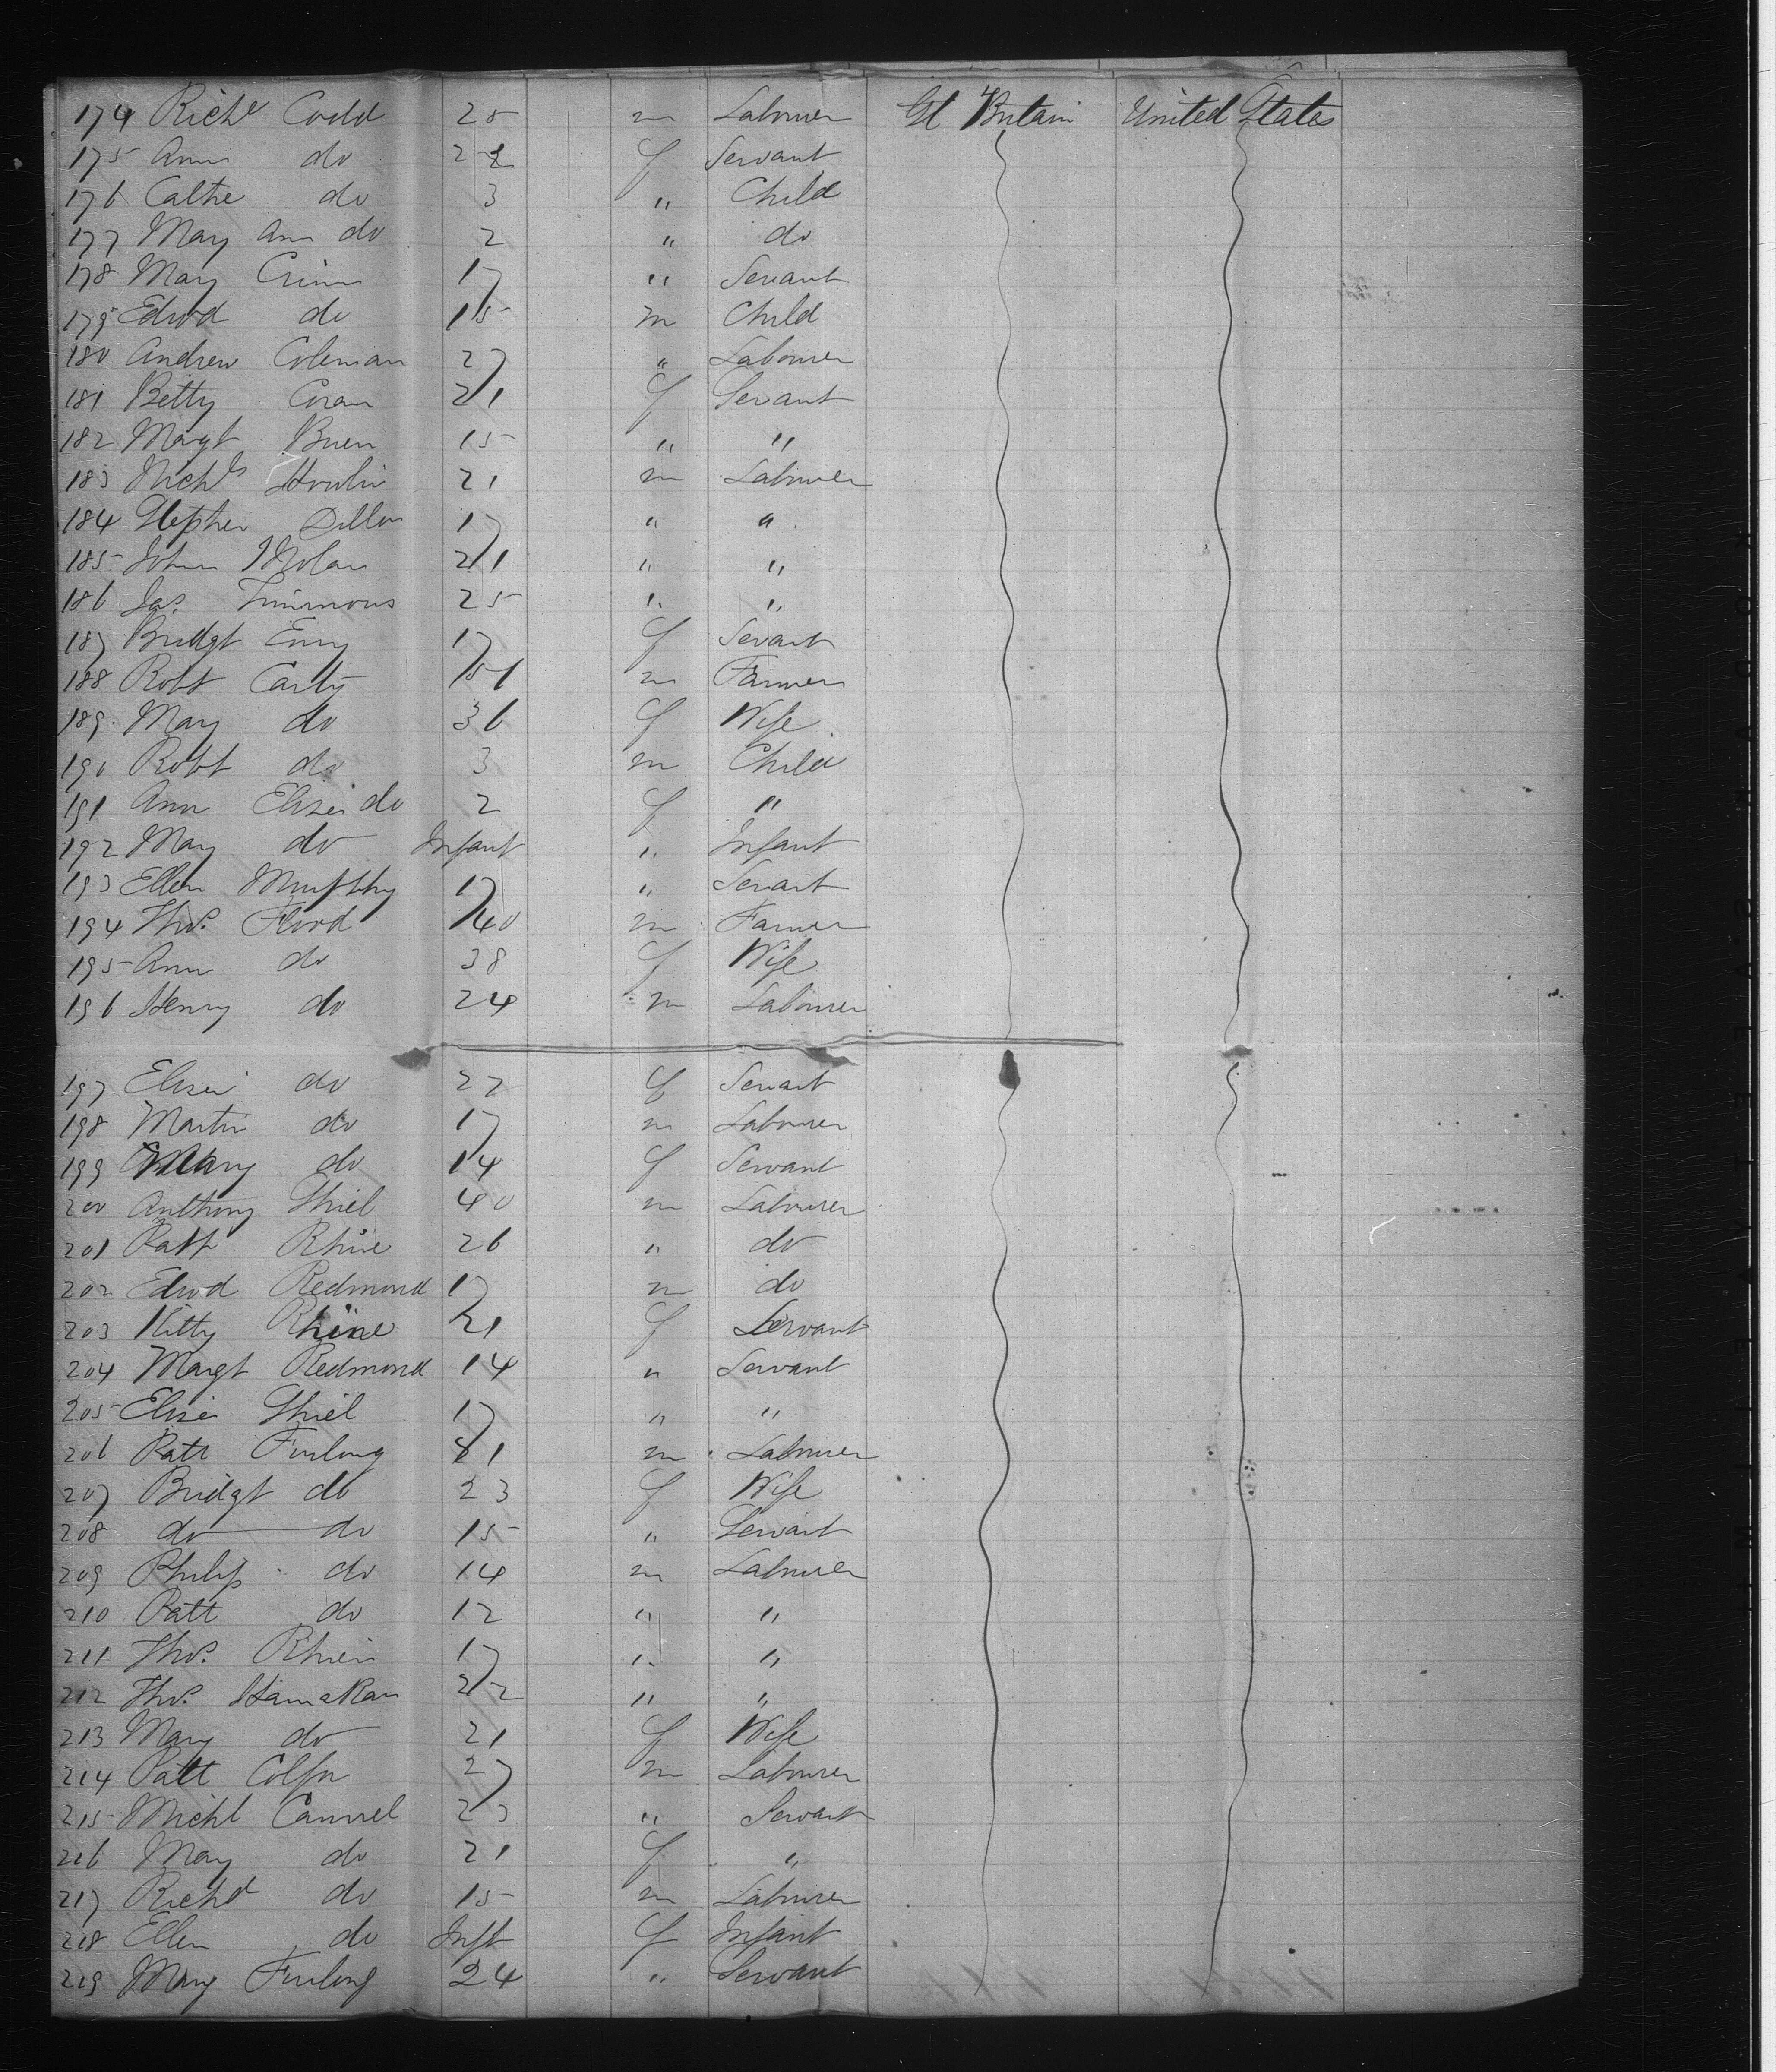 174 Richd Codd 25 m Labourer Gt Britain United States
175 Ann do 22 f Servant
176 Cathe do 3 " Child
177 Mary Ann do 2 " do
178 Mary Crinn 17 " Servant
179 Edwd do 15 m Child
180 Andrew Coleman 27 " Labourer
181 Betty Coran 21 f Servant
182 Margt Buen 15 " "
183 Nichls Howlin 21 m Labourer
184 Stephen Dillon 17 " "
185 John Nolan 21 " "
186 Jas. Timmons 25 " "
187 Bridgt 17 f Servant
188 Robt Carty 51 m Farmer
189 Mary do 36 f Wife
190 Robt do 3 m Child
191 Ann Eliza do 2 f "
192 Mary do Infant " Infant
193 Ellen Murphy 17 " Servant
194 Thos. Flood 40 m Farmer
195 Ann do 38 f Wife
196 Henry do 24 m Labourer
197 Eliza do 22 f Servant
198 Martin do 17 m Labourer
199 Mary do 14 f Servant
200 Anthony Shiel 40 m Labourer
201 Patt Rhine 26 " do
202 Edwd Redmond 17 m do
203 Kitty Rhine 21 f Servant
204 Margt Redmond 14 " Servant
205 Eliza Shiel 17 " "
206 Patt Furlong m Labourer
207 Bridgt do 23 f Wife
208 do do 15 " Servant
209 Philip do 14 m Labourer
210 Patt do 12 " "
211 Thos. Rhien 17 " "
212 Thos. Hamakan 22 " "
213 Mary do 21 f Wife
214 Patt Colfer 27 m Labourer
215 Michl Cannel 23 " Servant
216 Mary do 21 f "
217 Richd do 15 m Labourer
218 Ellen do Inft f Infant
219 Mary Furlong 24 " Servant